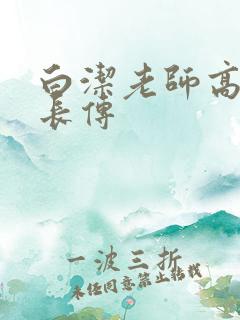 白潔老師高
長傳
一波三折
未經同意禁止轉載